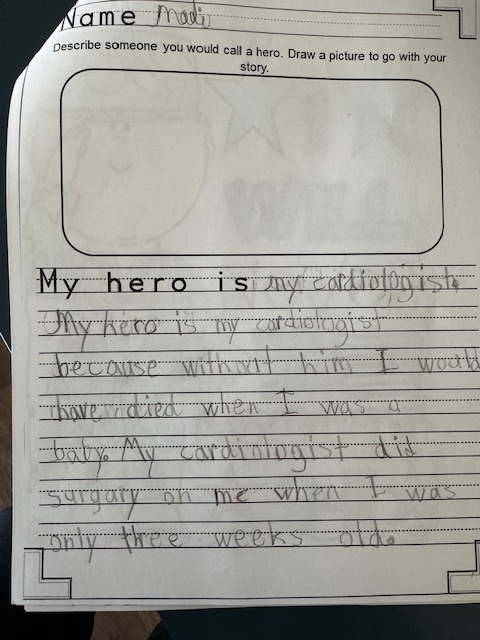 Name Madi
Describe someone you would call a hero. Draw a picture to go with your
story.
My hero is my cardiologist.
My hero is my cardiologist
because without him I would
have died when I was a
baby. My cardiologist did
surgary on me when I was
only three weeks old.